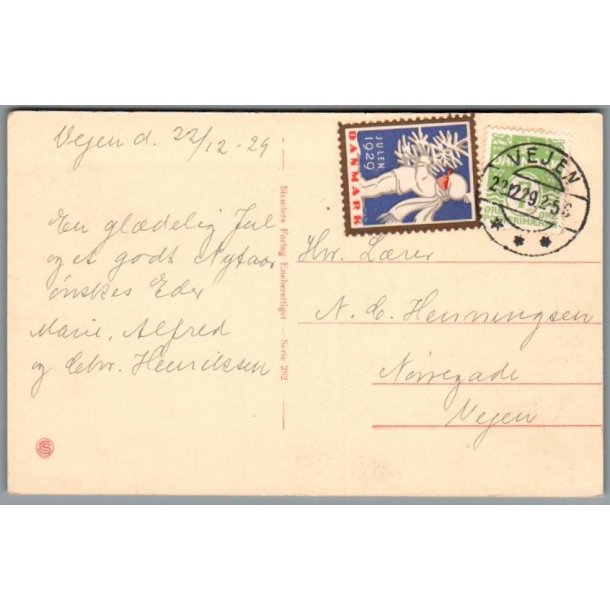 Vejen d. 22/12-29
En glædelig Jul
og et godt Nytaar
ønskes Eder
Marie, Alfred
og Chr. Henriksen
Stenders Forlag Eneberettiget - Serie 282
JULEN
1929
DANMARK
VEJEN
22.12.29.2-5 E
Hr. Lærer
N. C. Henningsen
Nørregade
Vejen